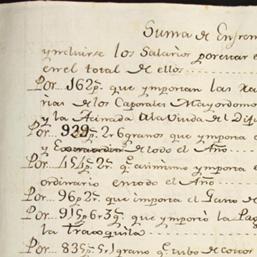 Suma de Enfren
y incluirse los Salarios por estar e
en el total de ellos
Por.. 162 p.s que importan las Ra
rias de los Caporales Mayordomos
y la Acinada a la Viuda de
Por.. 929 p.s 2 r 6 granos que importa e
y Extraordin de todo el Año
Por.. 454 p.s 2 r.s q.e asimismo importa e
ordinario en todo el Año
Por.. 96 p.s 2 r.s que importa el Gano de
Por.. 915 p.s 6 r 3 g.s que importó la Pag
la Traxoquila
Por.. 835 p.s 5 r 1 grano q.e tubo de costos